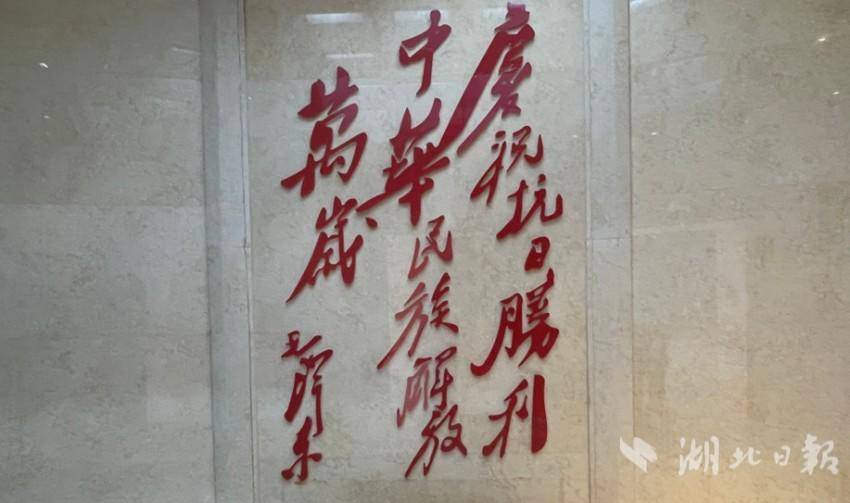 慶祝抗日勝利
中華民族解放
萬歲
毛澤东
湖北日報